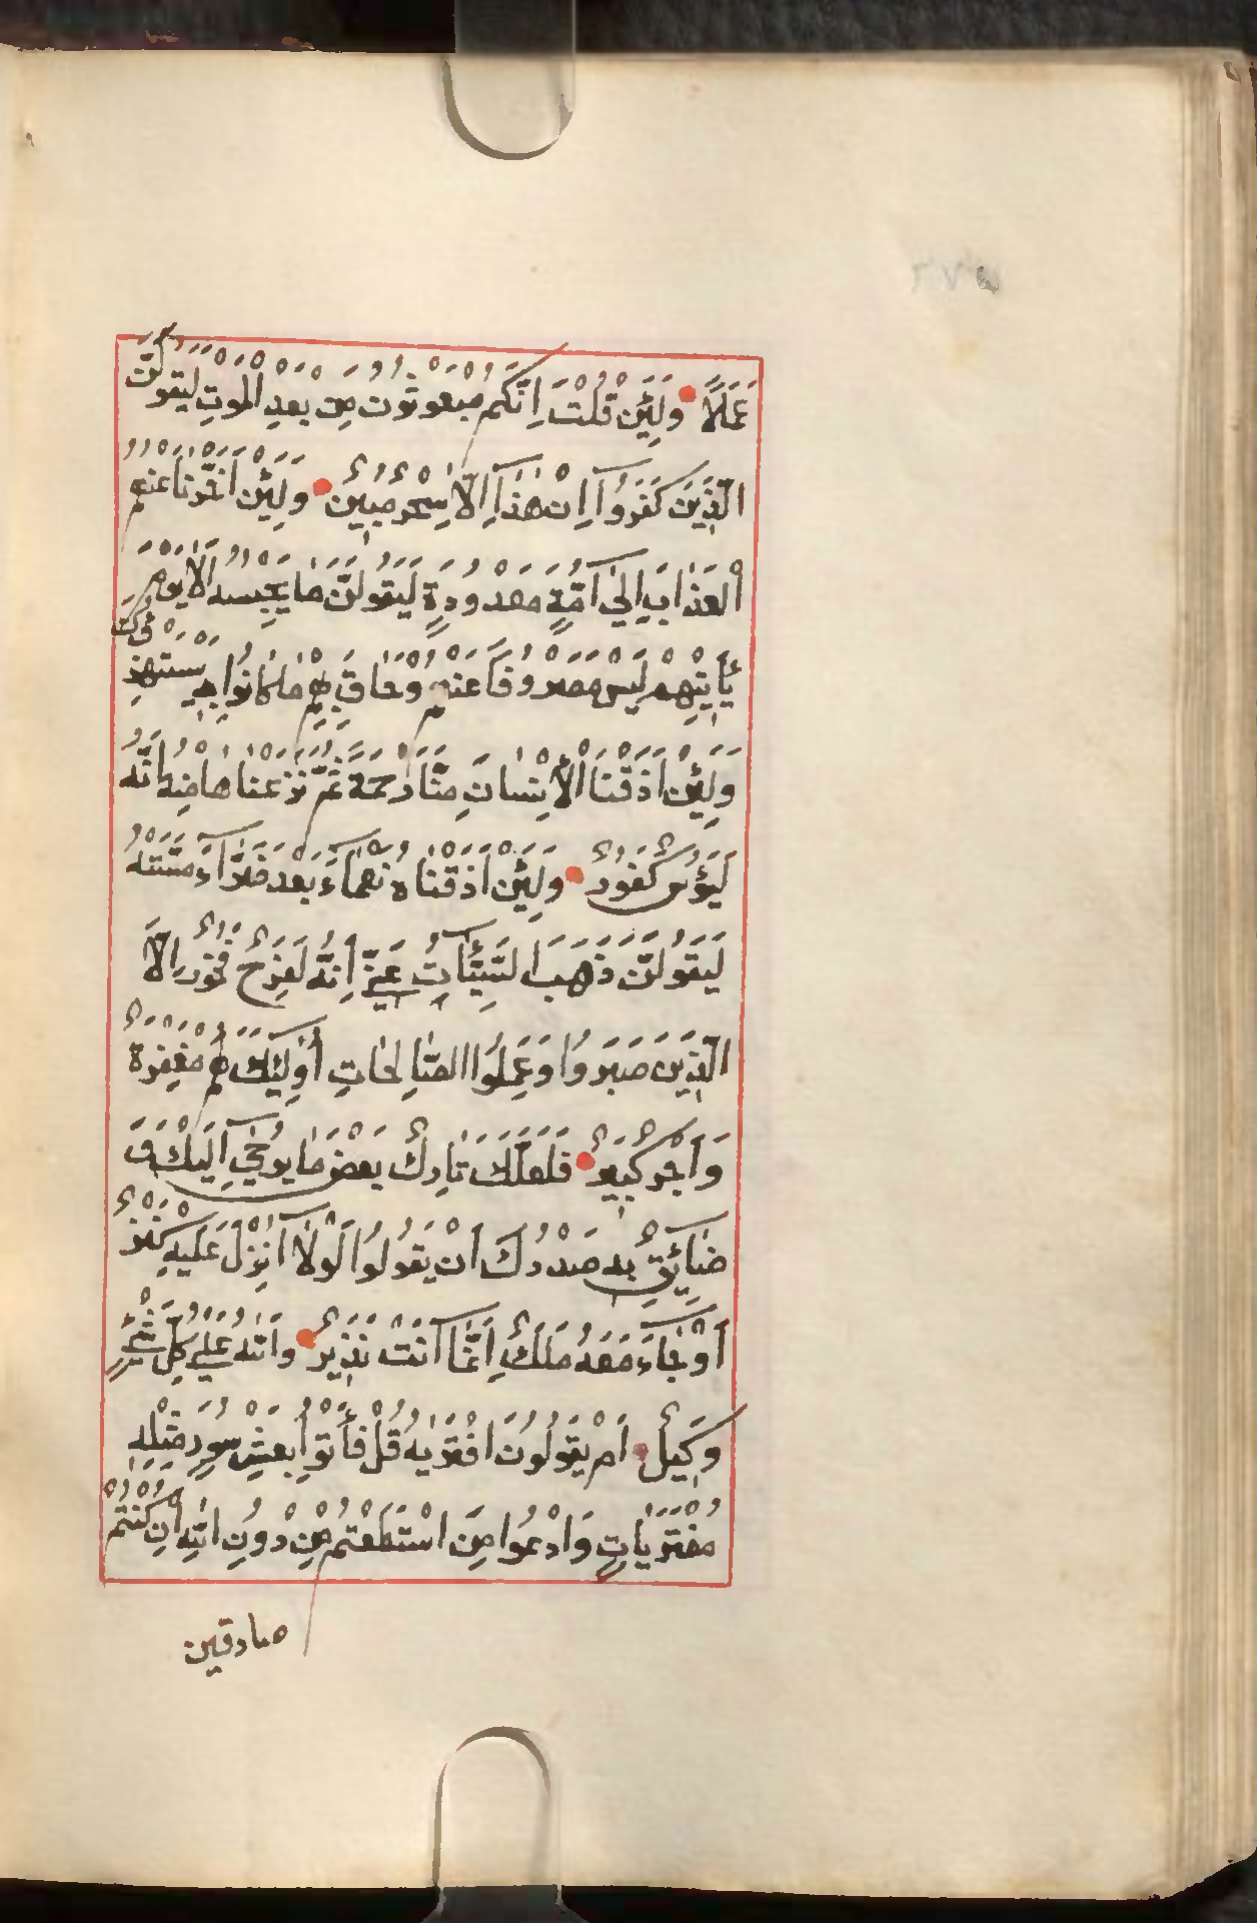 عَمَلًا وَلَئِنْ قُلْتَ اِنَّكُمْ مبعوثون مِن بعدِ الْموتِ ليقولنّ
الّذِينَ كَفَرُوا اِنْ هٰذَا اِلَّا سِحْرٌ مُبِينٌ وَلَئِنْ اَخَّرْنَا عنهم
الْعَذَابَ اِلٰى اُمَّةٍ مَعْدُودَةٍ لَيَقُولُنَّ مَا يَحْبِسُهُ اَلَا يَوْمَ
يَأْتِيهِمْ لَيْسَ مَصْرُوفًا عَنْهُمْ وَحَاقَ بِهِمْ مَا كَانُوا بِهِ يستهزؤن
وَلَئِنْ اَذَقْنَا الْاِنْسَانَ مِنَّا رَحْمَةً ثُمَّ نَزَعْنَاهَا مِنْهُ اِنَّهُ
لَيَؤُسٌ كَفُورٌ وَلَئِنْ اَذَقْنَاهُ نَعْمَاءَ بَعْدَ ضَرَّاءَ مَسَّتْهُ
لَيَقُولَنَّ ذَهَبَ السَّيِّئَاتُ عَنِّى اِنَّهُ لَفَرِحٌ فَخُورٌ اِلَّا
الَّذِينَ صَبَرُوا وَعَمِلُوا الصَّالِحَاتِ اُولٰئِكَ لَهُمْ مَغْفِرَةٌ
وَاَجْرٌ كَبِيرٌ فَلَعَلَّكَ تَارِكٌ بَعْضَ مَا يُوحٰى اِلَيْكَ وَ
ضَائِقٌ بِهِ صَدْرُكَ اَنْ يَقُولُوا لَوْلَا اُنْزِلَ عَلَيْهِ كَنْزٌ
اَوْ جَاءَ مَعَهُ مَلَكٌ اِنَّمَا اَنْتَ نَذِيرٌ وَاللّٰهُ عَلٰى كُلِّ شَىْءٍ
وَكِيلٌ اَمْ يَقُولُونَ افْتَرٰيهُ قُلْ فَأْتُوا بِعَشْرِ سُوَرٍ مِثْلِهِ
مُفْتَرَيَاتٍ وَادْعُوا مَنِ اسْتَطَعْتُمْ مِنْ دُونِ اللّٰهِ اِنْ كُنْتُمْ
صادقين